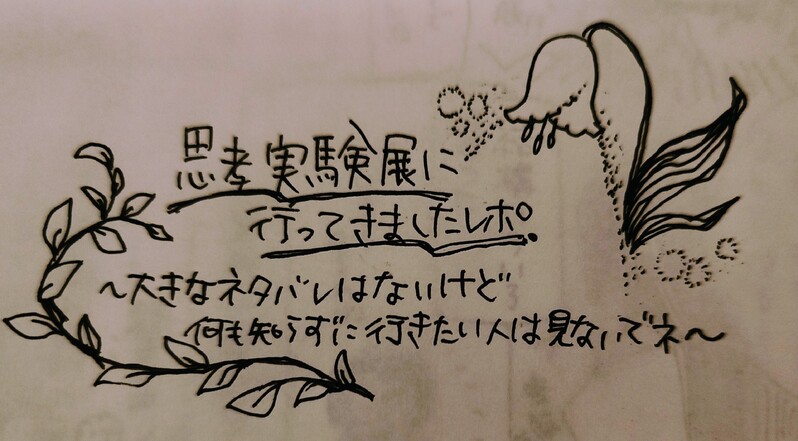 思考実験展に
行ってきましたレポ。
〜大きなネタバレはないけど
何も知らずに行きたい人は見ないでネ〜